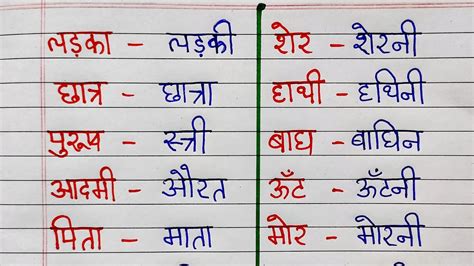 लड़का – लड़की
छात्र – छात्रा
पुरूष – स्त्री
आदमी – औरत
पिता – माता
शेर – शेरनी
हाथी – हथिनी
बाघ – बाघिन
ऊँट – ऊँटनी
मोर – मोरनी